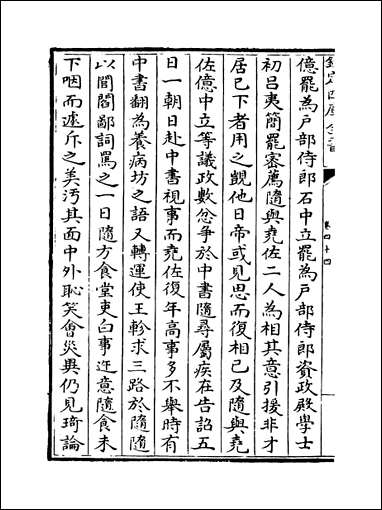 欽定四庫全書
卷四十四
億罷為戶部侍郎石中立罷為戶部侍郎資政殿學士
初呂夷簡罷密薦隨與堯佐二人為相其意引援非才
居已下者用之覬他日帝或見思而復相已及隨與堯
佐億中立等議政數忿爭於中書隨尋屬疾在告詔五
日一朝日赴中書視事而堯佐復年高事多不舉時有
中書翻為養病坊之語又轉運使王軫求三路於隨隨
以閭閻鄙詞罵之一日隨方食堂吏白事迕意隨食未
下咽而遽斥之羮汚其面中外恥笑會災異仍見琦論